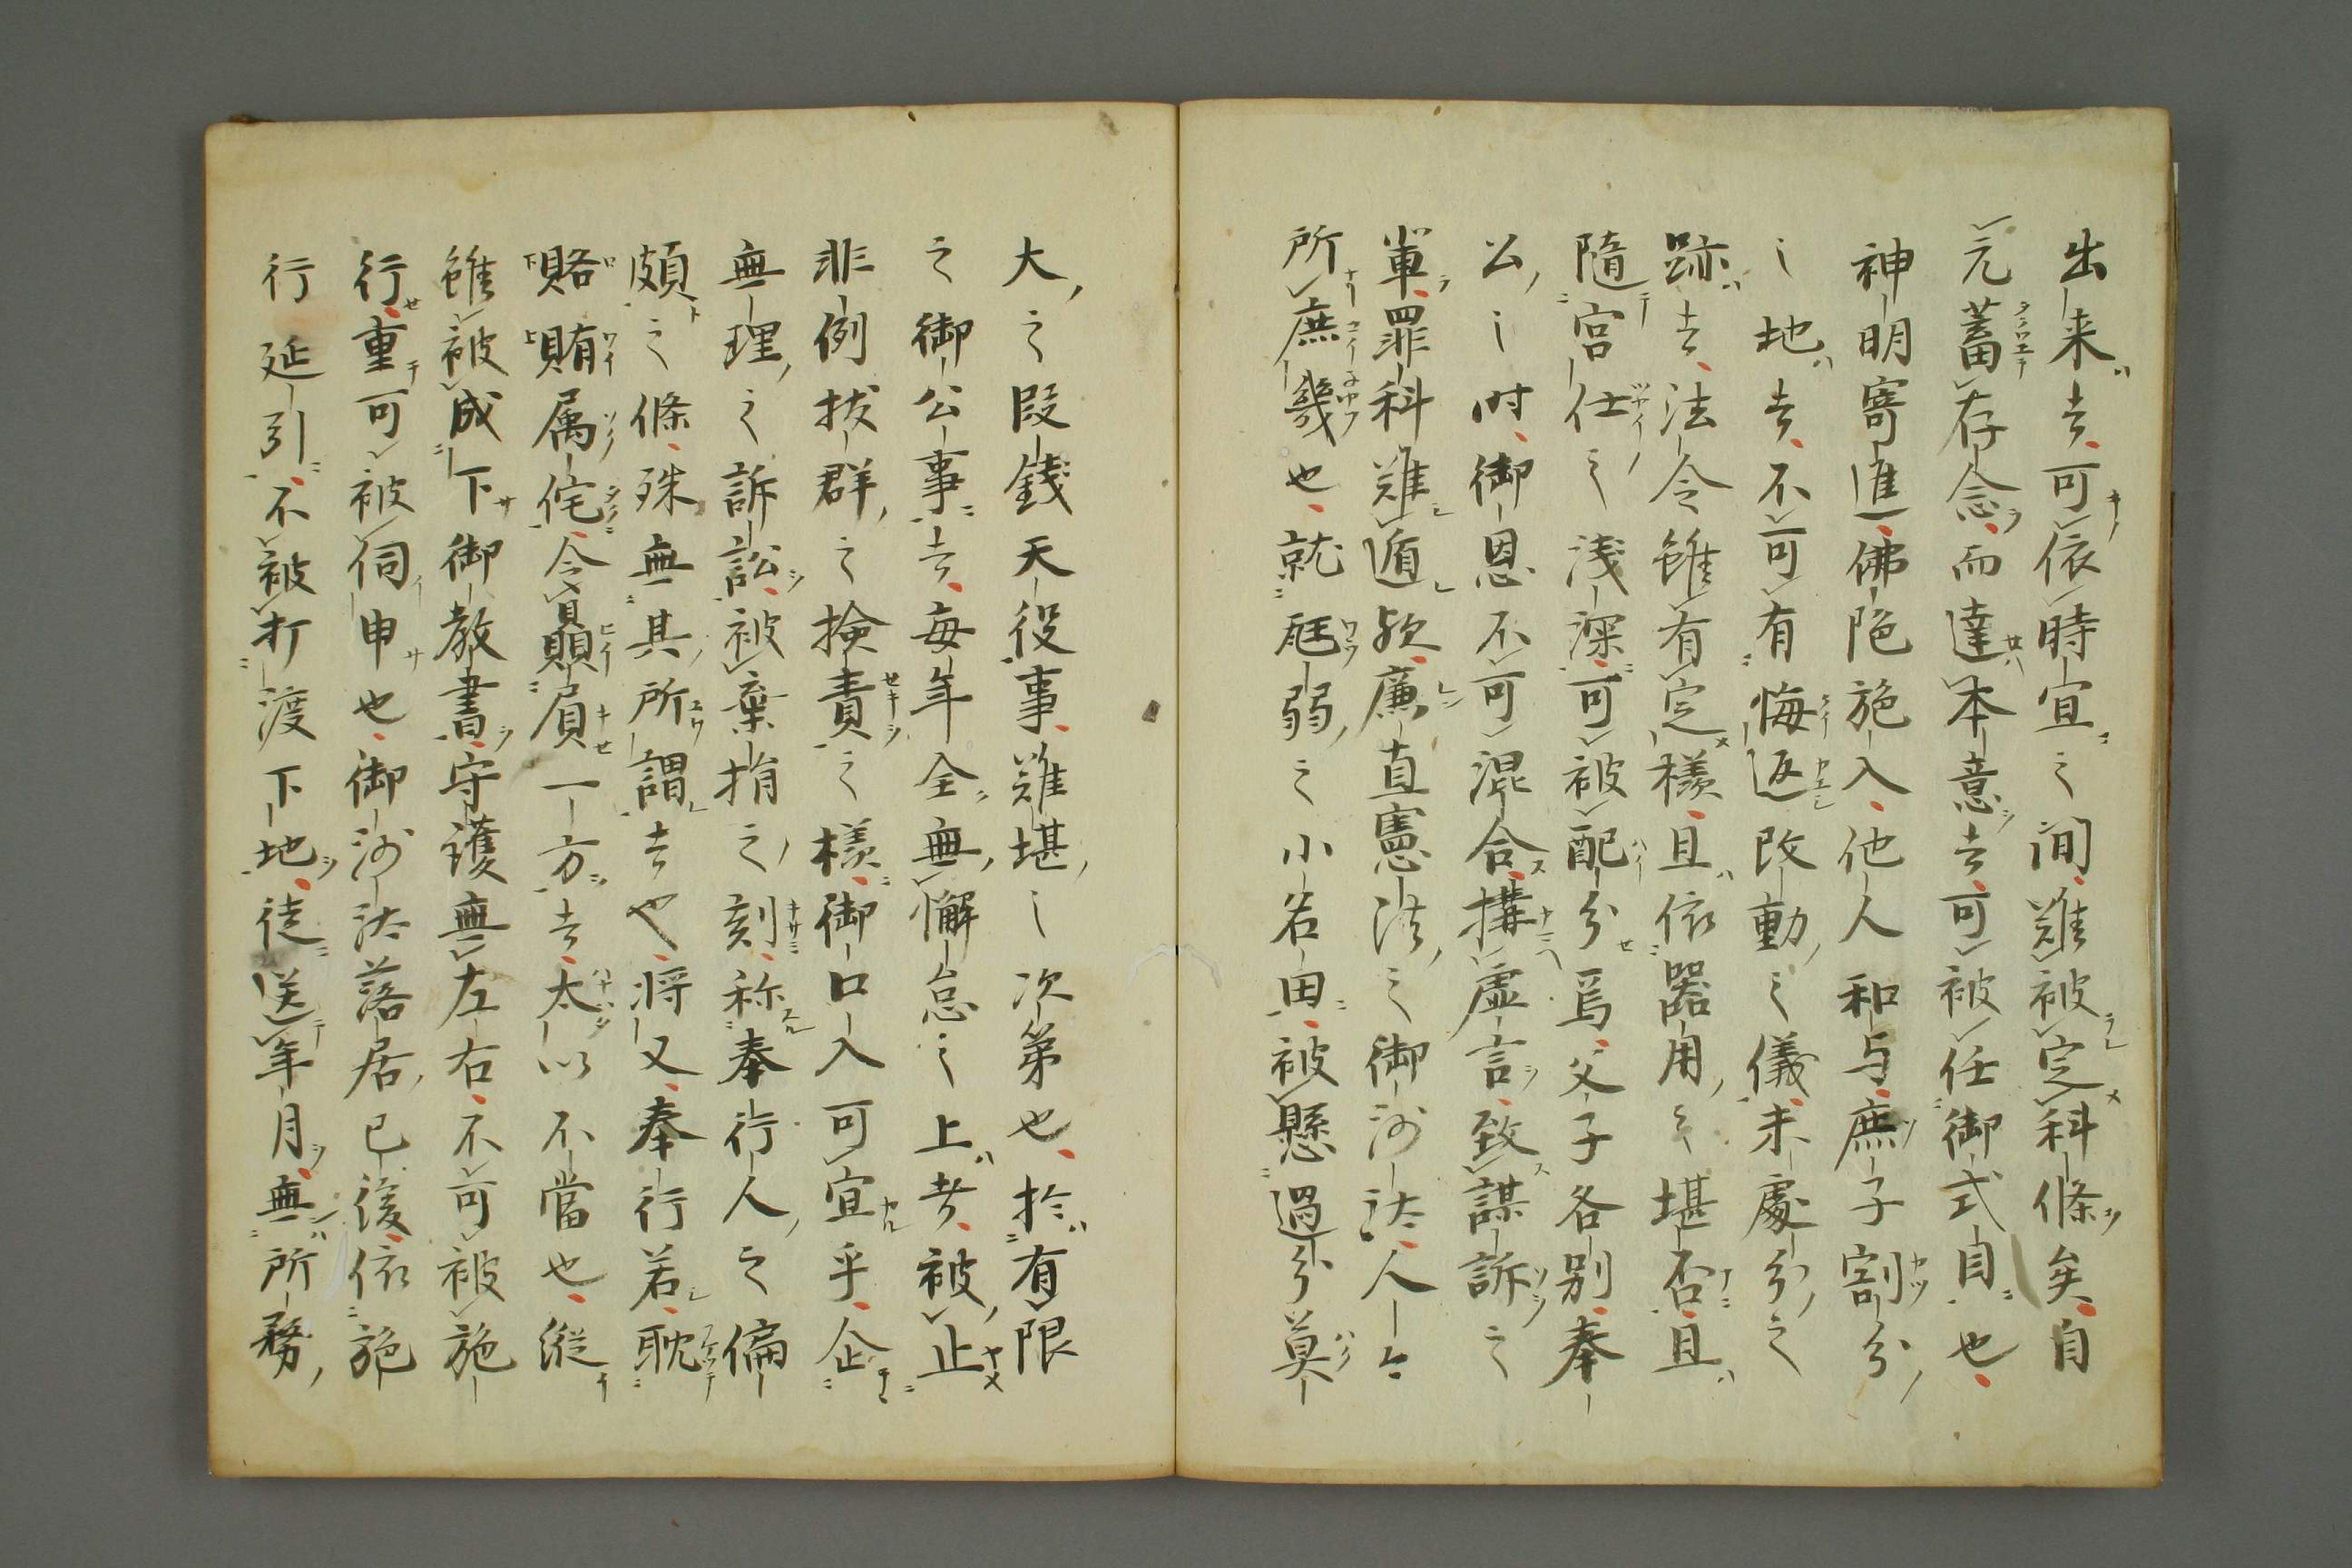 出来者可依時宜之間難被定科條矣自
元蓄存念而達本意者可被任御式目也
神明寄進佛陁施入他人和与庶子割分
之地者不可有悔返改動之儀未處分之
跡者法令雖有定様且依器用之堪否且
隨宮仕之浅深可被配分焉父子各別奉
公之时御恩不可混合構虚言致謀訴之
輩罪科難遁欤廉直憲法之御沙汰人々
所庶幾也就尫弱之小名田被懸過分莫
大之段錢天役事難堪之次第也於有限
之御公事者毎年全無懈怠之上者被止
非例抜群之撿責之様御口入可宜乎企
無理之訴訟被棄捐之刻称奉行人之偏
頗之條殊無其所謂者也将又奉行若耽
賂賄属侘令贔屓一方者太以不當也縦
雖被成下御教書守護無左右不可被施
行重可被伺申也御沙汰落居已後依施
行延引不被打渡下地徒送年月無所務